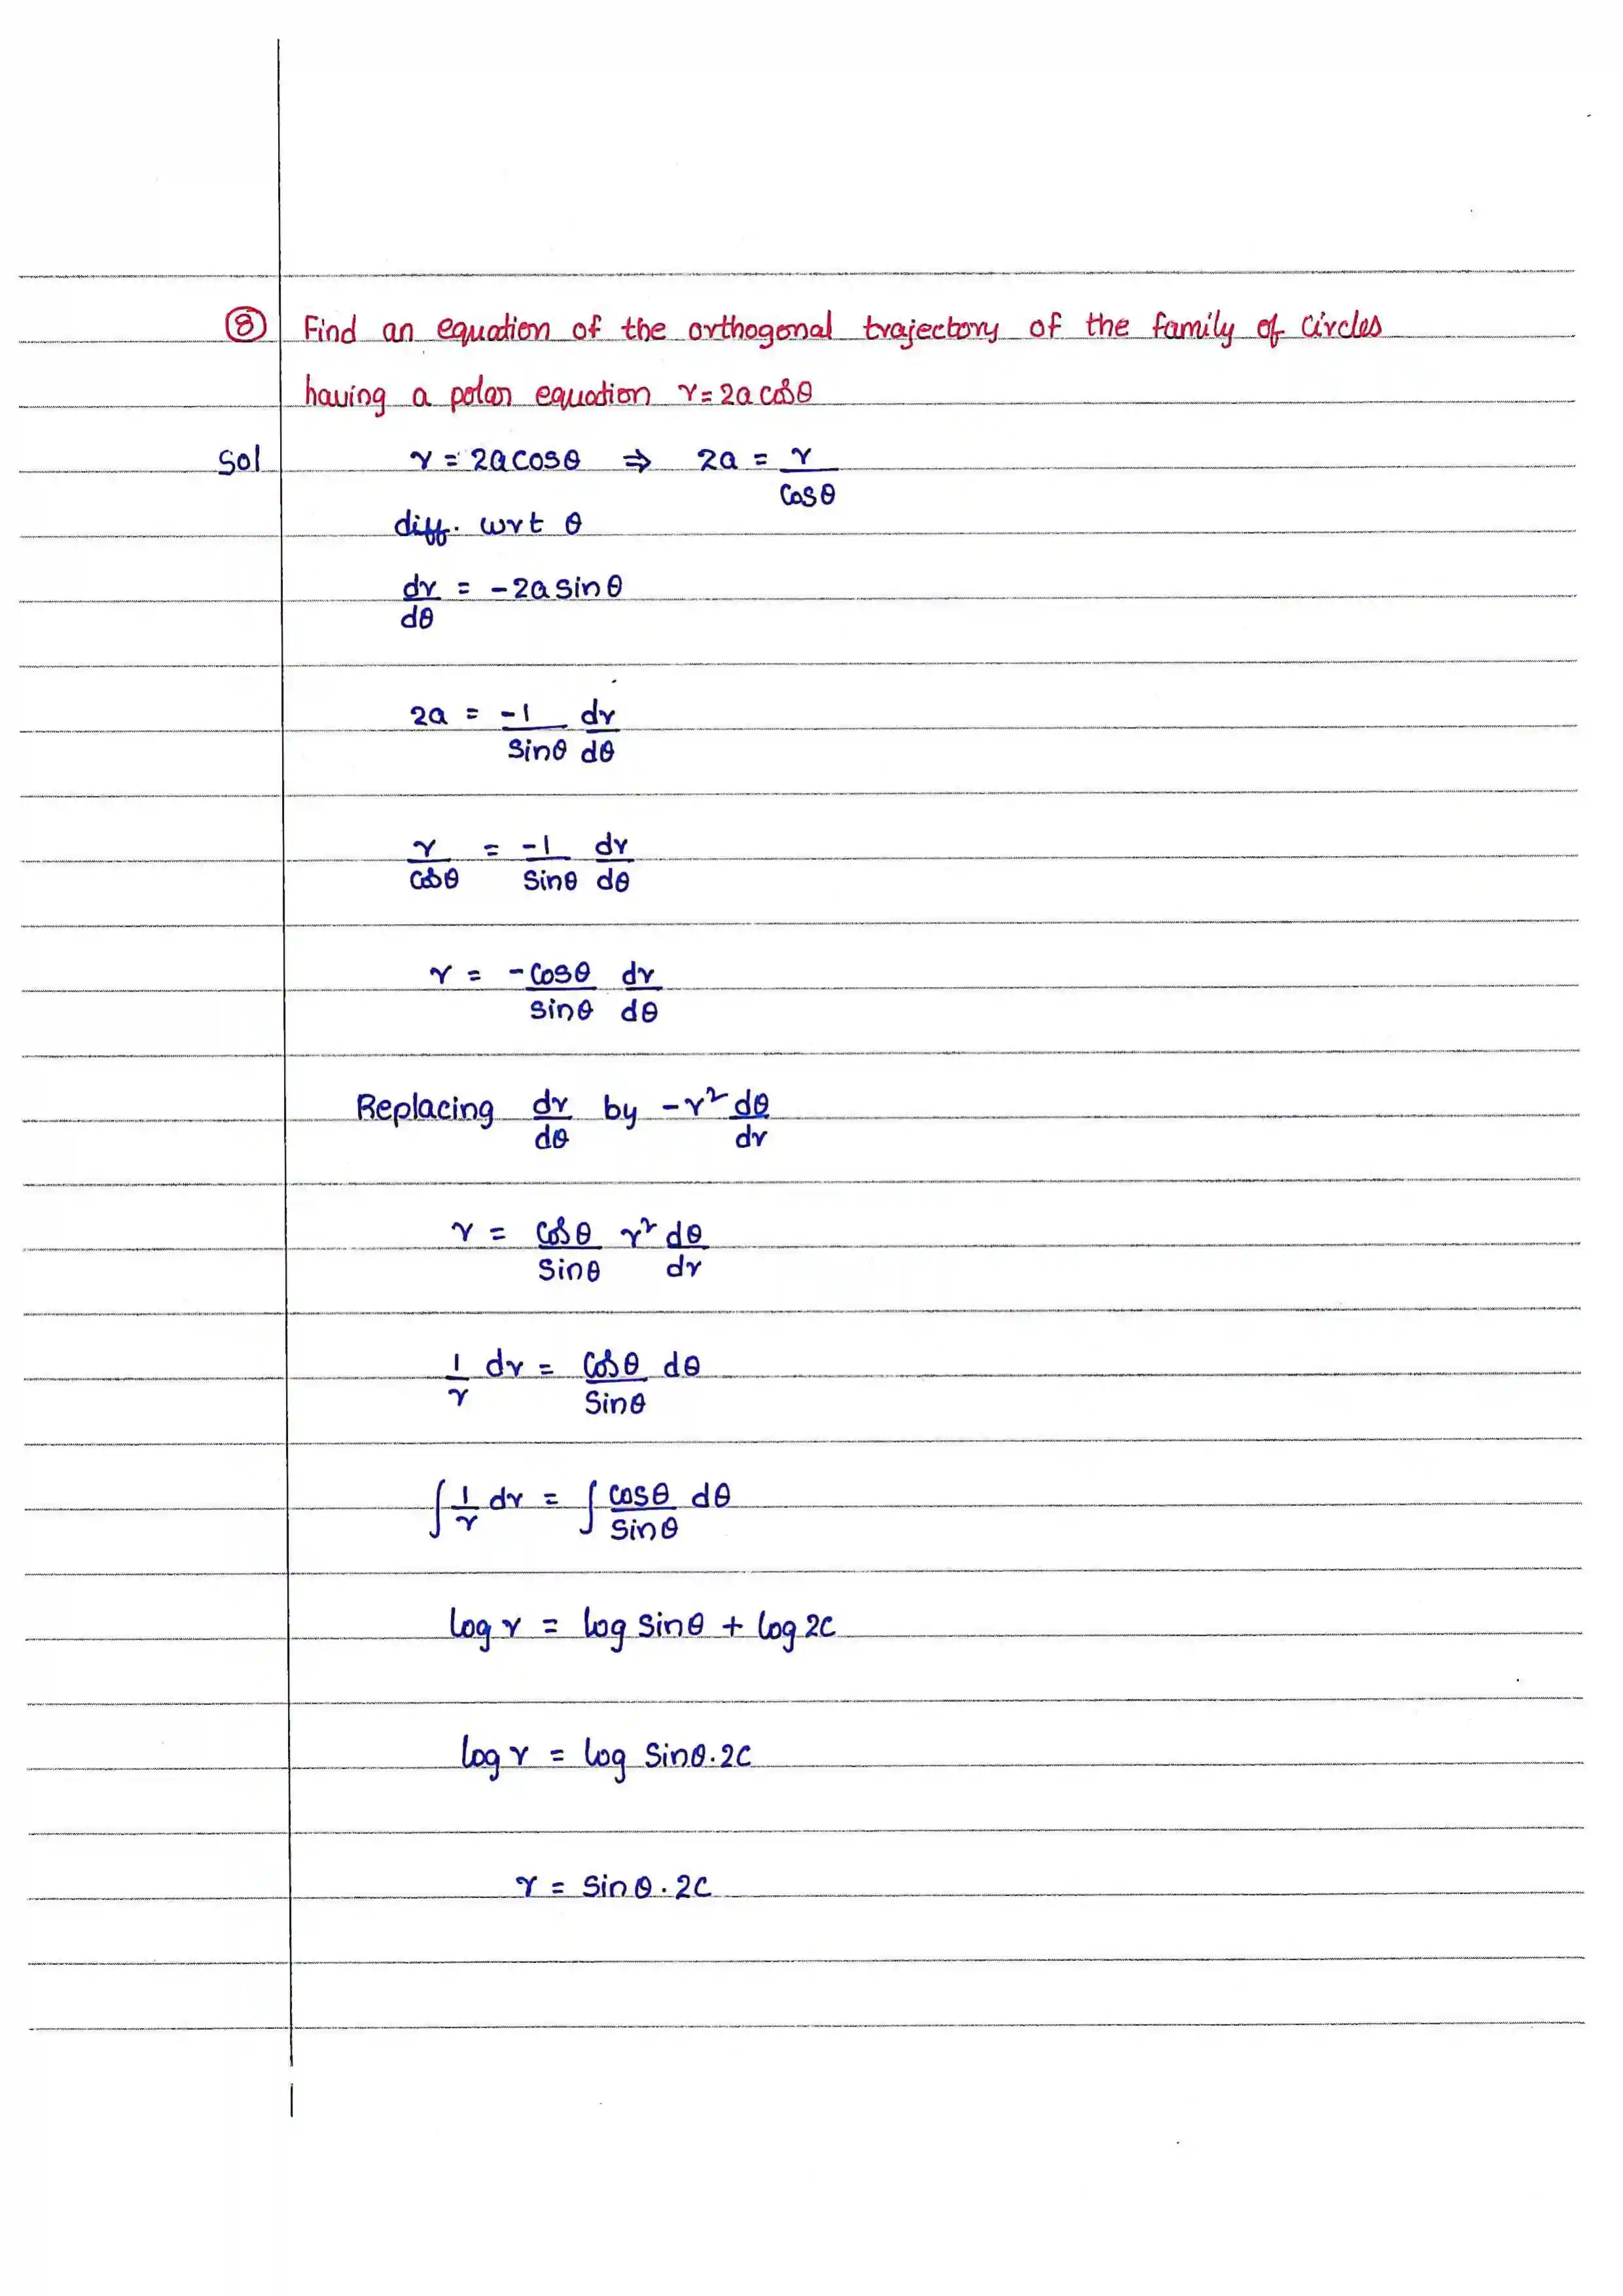 ⑧ Find an equation of the orthogonal trajectory of the family of circles
having a polar equation r = 2a cosθ
Sol r = 2a cosθ ⇒ 2a = r/cosθ
diff. wrt θ
dr/dθ = -2a sinθ
2a = -1/sinθ dr/dθ
r/cosθ = -1/sinθ dr/dθ
r = -cosθ/sinθ dr/dθ
Replacing dr/dθ by -r² dθ/dr
r = cosθ/sinθ r² dθ/dr
1/r dr = cosθ/sinθ dθ
∫ 1/r dr = ∫ cosθ/sinθ dθ
log r = log sinθ + log 2c
log r = log sinθ.2c
r = sinθ.2c